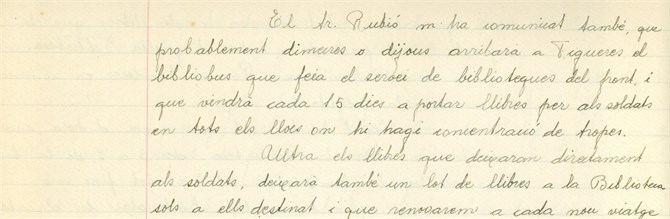 El Sr. Rubió m'ha comunicat també, que
probablement dimecres o dijous arribarà a Figueres el
bibliobus que feia el servei de biblioteques del front, i
que vindrà cada 15 dies a portar llibres per als soldats
en tots els llocs on hi hagi concentració de tropes.
Ultra els llibres que deixaran directament
als soldats, deixarà també un lot de llibres a la Biblioteca
sols a ells destinat i que renovarem a cada nou viatge